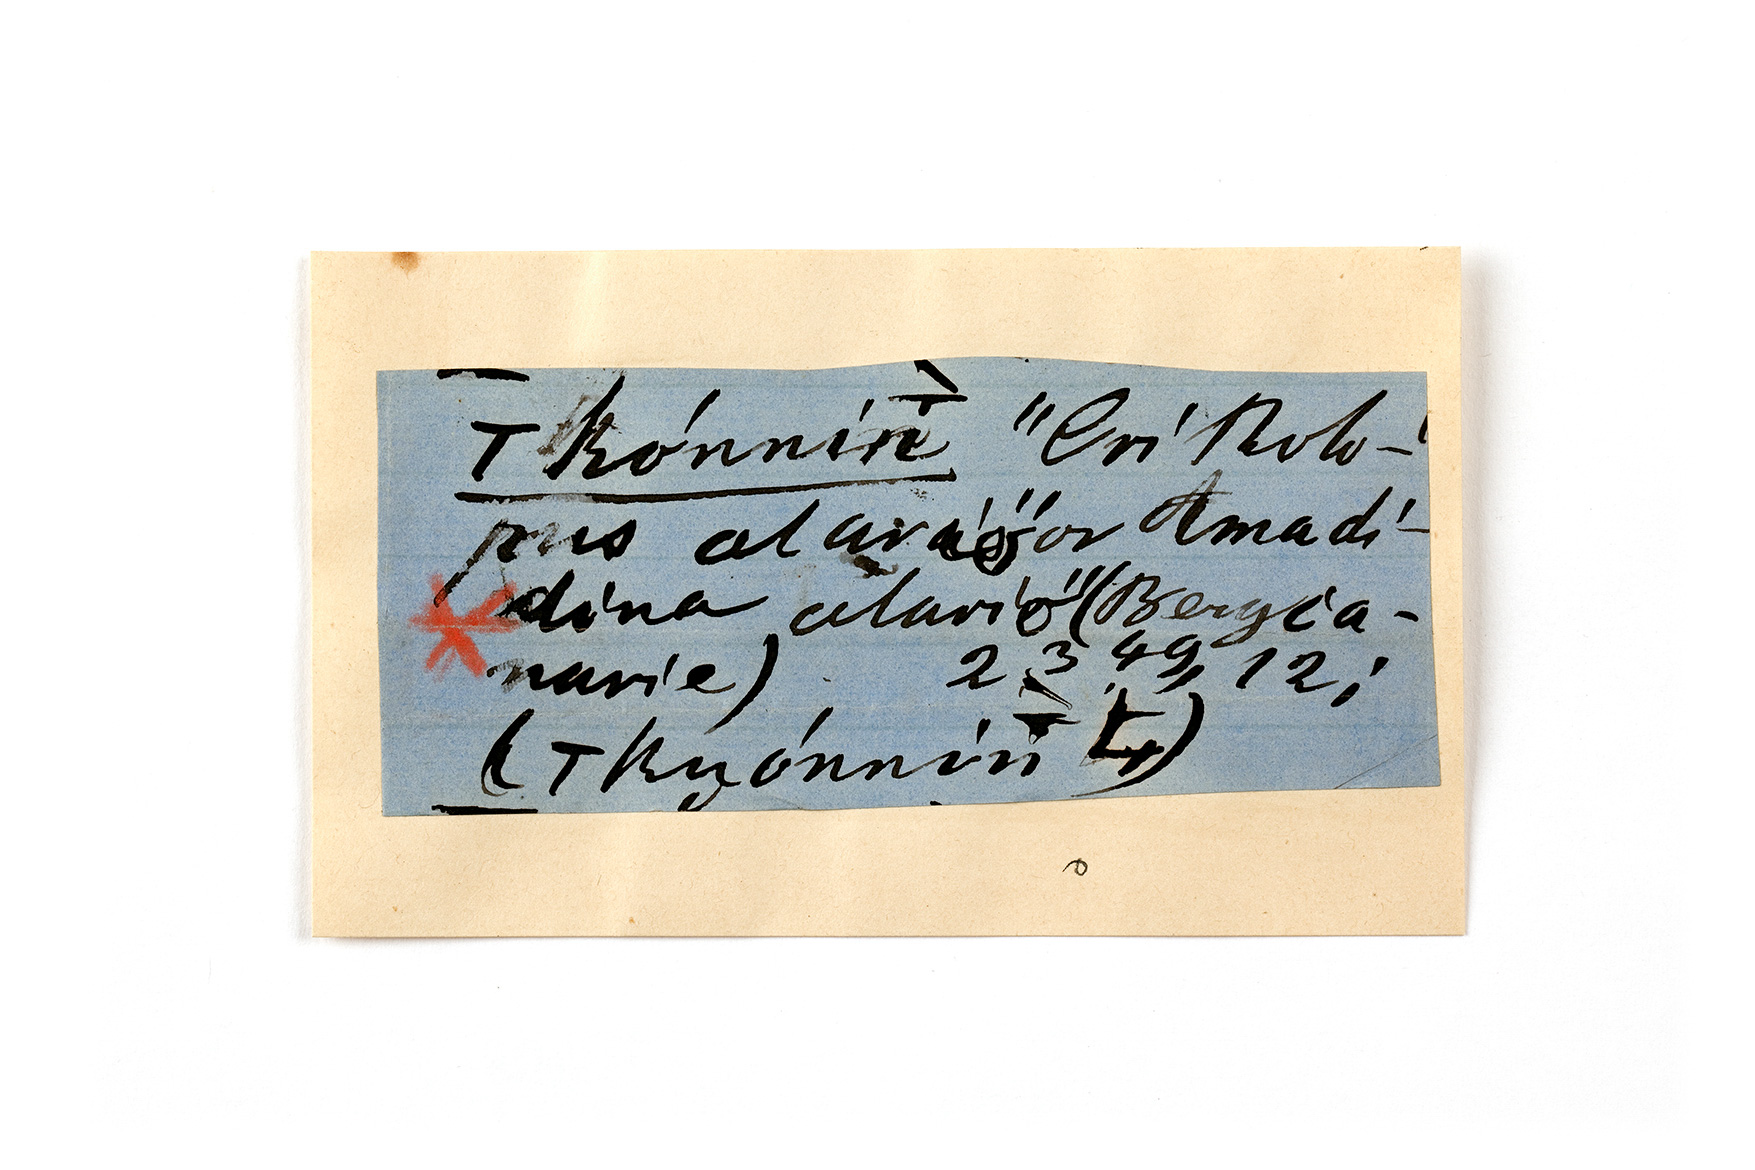 Tkónnin "Cri Rolo-
pus alario" or Amadi-
dina alario" (Berg ca-
narie) 2349, 12;
(Tkuónnin L)